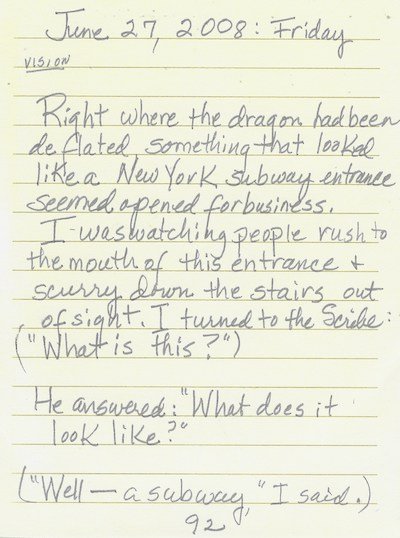 June 27, 2008: Friday
VISION
Right where the dragon had been
deflated, something that looked
like a New York subway entrance
seemed opened for business.
I was watching people rush to
the mouth of this entrance &
scurry down the stairs out
of sight. I turned to the Scribe:
("What is this?")
He answered: "What does it
look like?"
("Well — a subway," I said.)
92